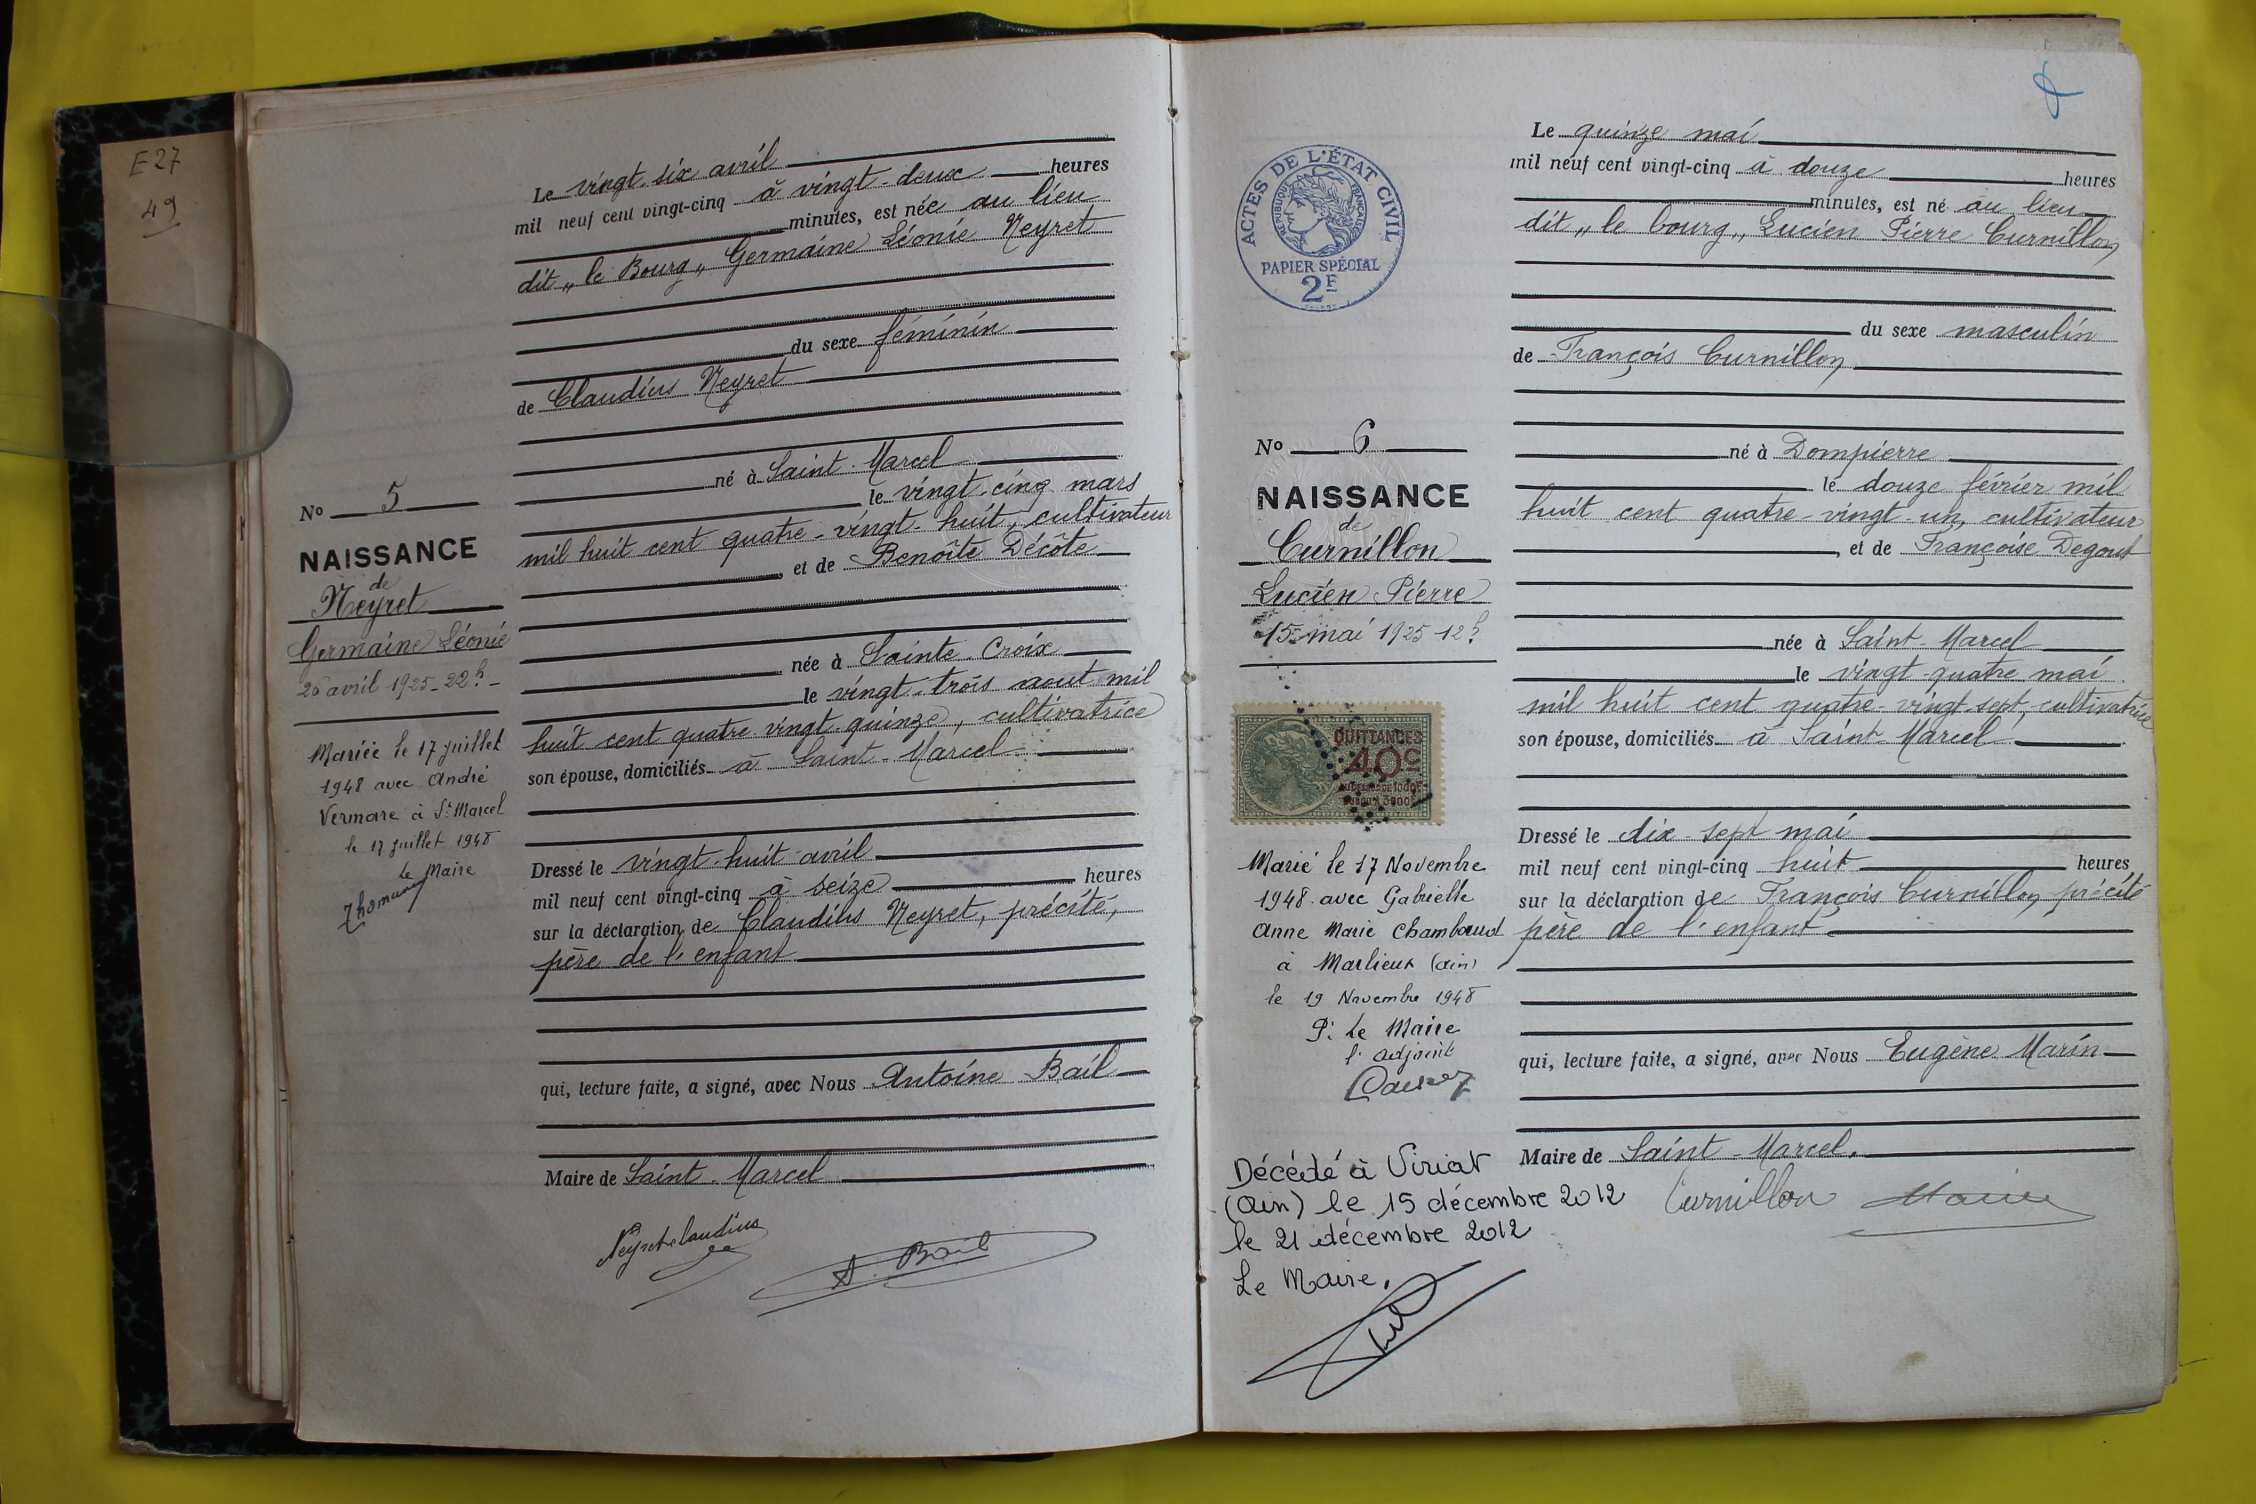 E27
49
Le vingt-six avril
mil neuf cent vingt-cinq à vingt-deux heures
minutes, est née au lieu
dit „le Bourg„ Germaine Léonie Neyret
du sexe féminin
de Claudius Neyret
né à Saint-Marcel
le vingt-cinq mars
mil huit cent quatre-vingt-huit, cultivateur
, et de Benoîte Décôte
née à Sainte-Croix
le vingt-trois aout mil
huit cent quatre-vingt-quinze, cultivatrice
son épouse, domiciliés à Saint-Marcel
Dressé le vingt-huit avril
mil neuf cent vingt-cinq à seize heures
sur la déclaration de Claudius Neyret, précité,
père de l'enfant
qui, lecture faite, a signé, avec Nous Antoine Bail
Maire de Saint-Marcel
Neyret claudius
A. Bail
No 5
NAISSANCE
de
Neyret
Germaine Léonie
26 avril 1925-22h-
Mariée le 17 juillet
1948 avec André
Vermare à St Marcel
le 17 juillet 1948
le Maire
ACTES DE L'ÉTAT CIVIL
RÉPUBLIQUE FRANÇAISE
PAPIER SPÉCIAL
2F
No 6
NAISSANCE
de
Curnillon
Lucien Pierre
15 mai 1925 12h
QUITTANCES
40c
Marié le 17 Novembre
1948 avec Gabrielle
Anne Marie Chamboud
à Marlieux (ain)
le 19 Novembre 1948
P. Le Maire
l'adjoint
Décédé à Viriat
(Ain) le 15 décembre 2012
le 21 décembre 2012
Le Maire,
8
Le quinze mai
mil neuf cent vingt-cinq à douze heures
minutes, est né au lieu
dit „le bourg„ Lucien Pierre Curnillon
du sexe masculin
de François Curnillon
né à Dompierre
le douze février mil
huit cent quatre-vingt-un, cultivateur
, et de Françoise Degout
née à Saint-Marcel
le vingt-quatre mai
mil huit cent quatre-vingt-sept, cultivatrice
son épouse, domiciliés à Saint-Marcel
Dressé le dix-sept mai
mil neuf cent vingt-cinq huit heures
sur la déclaration de François Curnillon, précité
père de l'enfant
qui, lecture faite, a signé, avec Nous Eugène Marin
Maire de Saint-Marcel.
Curnillon Marin